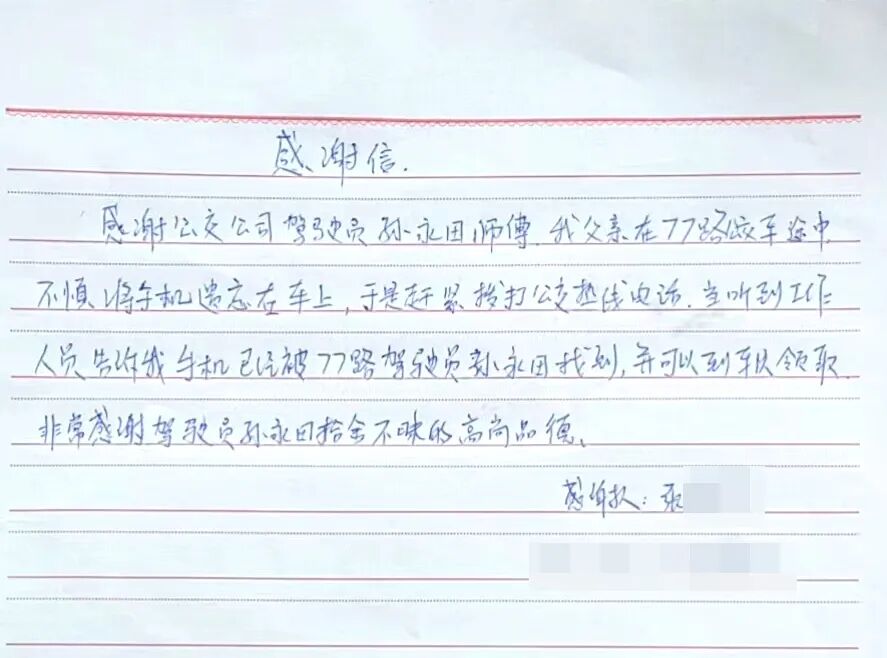 感谢信.
感谢公交公司驾驶员孙永田师傅.我父亲在77路收车途中
不慎将手机遗忘在车上,于是赶紧拨打公交热线电话.当听到工作
人员告诉我手机已经被77路驾驶员孙永田找到,并可以到车队领取.
非常感谢驾驶员孙永田拾金不昧的高尚品德、
感谢人:张